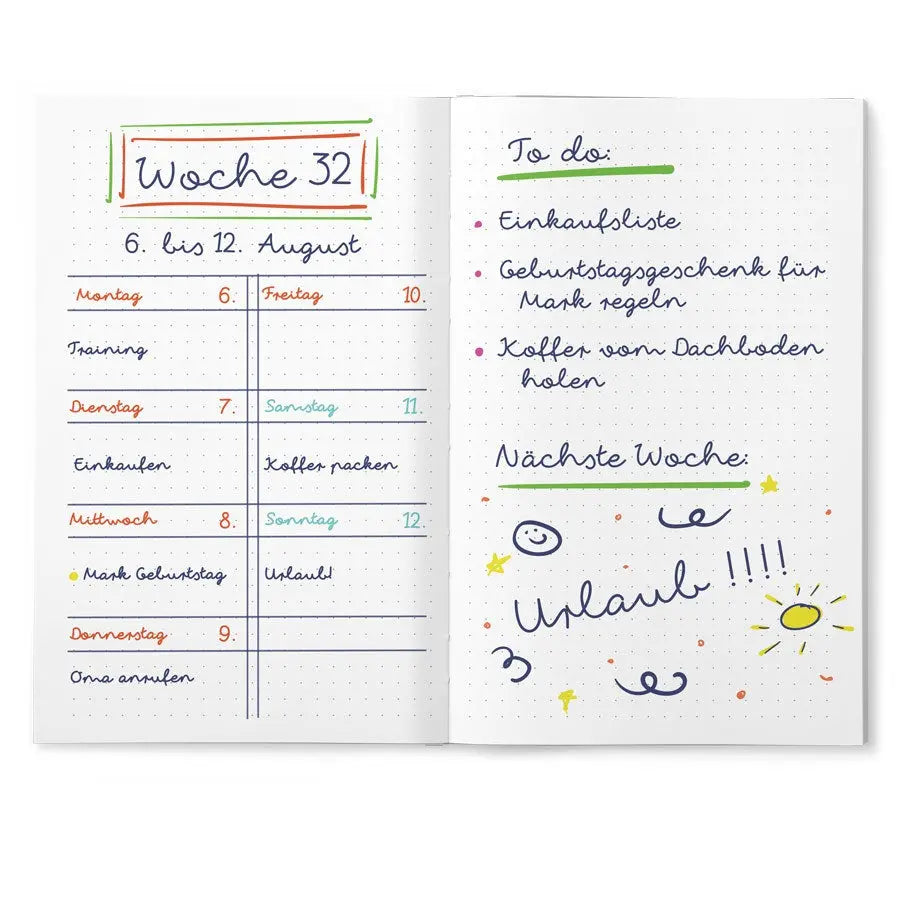 Woche 32
6. bis 12. August
Montag 6.
Training
Dienstag 7.
Einkaufen
Mittwoch 8.
Mark Geburtstag
Donnerstag 9.
Oma anrufen
Freitag 10.
Samstag 11.
Koffer packen
Sonntag 12.
Urlaub!
To do:
Einkaufsliste
Geburtstagsgeschenk für
Mark regeln
Koffer vom Dachboden
holen
Nächste Woche:
Urlaub !!!!